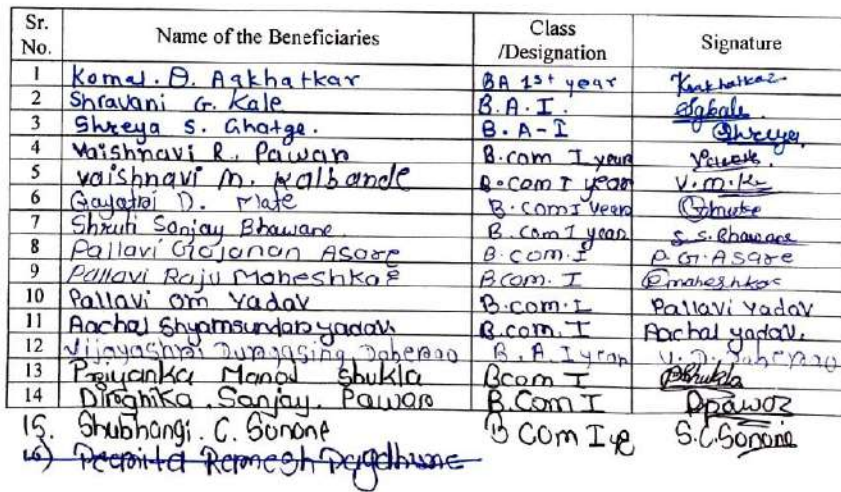 Sr. No. Name of the Beneficiaries Class /Designation Signature
1 Komal. D. Aakhatkar BA 1st year
2 Shravani G. Kale B.A.I.
3 Shreya S. Ghatge. B.A-I Shreya
4 Vaishnavi R. Pawar B.com I year
5 Vaishnavi M. Kalbande B.com I year V.M.K
6 Gayatri D. Mate B.com I year
7 Shruti Sanjay Bhawane B.com I year S.S.Bhawane
8 Pallavi Gajanan Asare B.com.I P.G.Asare
9 Pallavi Raju Maheshkar B.com. I Pmaheshkar
10 Pallavi Om Yadav B.com.I Pallavi Yadav
11 Aachal Shyamsundar yadav. B.com. I Aachal yadav.
12 Vijayashri B.A. I year
13 Priyanka Manoj Shukla Bcom I PShukla
14 Sanjay. Pawar B.Com I
15. Shubhangi. C. Sonone B COM I S.C.Sonone
16) Ramesh